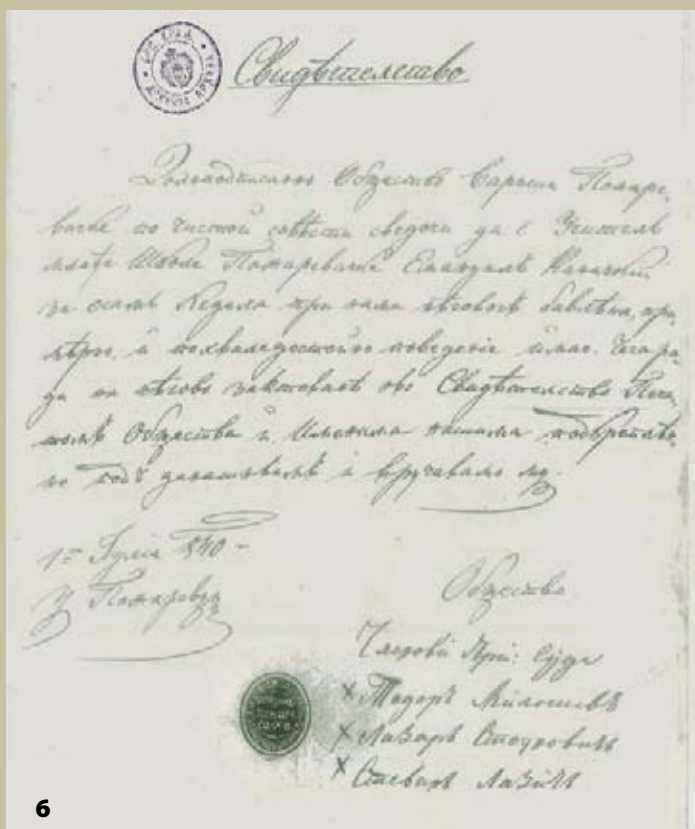 Свидѣтелство
Общество Вароши Пожаре-
вачке по чистой совѣсти сведочи да є Учитель
Школе Пожаревачке Емануилъ
за осамъ Недеља при нама нѣговогъ бавлѣня, при-
мѣрно, и похваледостойно поведеніе имао. Чега ра-
ди на нѣгово захтеванѣ ово Свидѣтелство Печа-
томъ Общества и Именима нашима подкрѣплѣ-
но подъ данашњимъ и вручавамо му.
1º Јулія 840
У Пожаревцу
Общество
Членови Прим: Суда
X Тодоръ Милошевъ
X Лазаръ Стоуровичъ
X Стеванъ Лазичъ
6